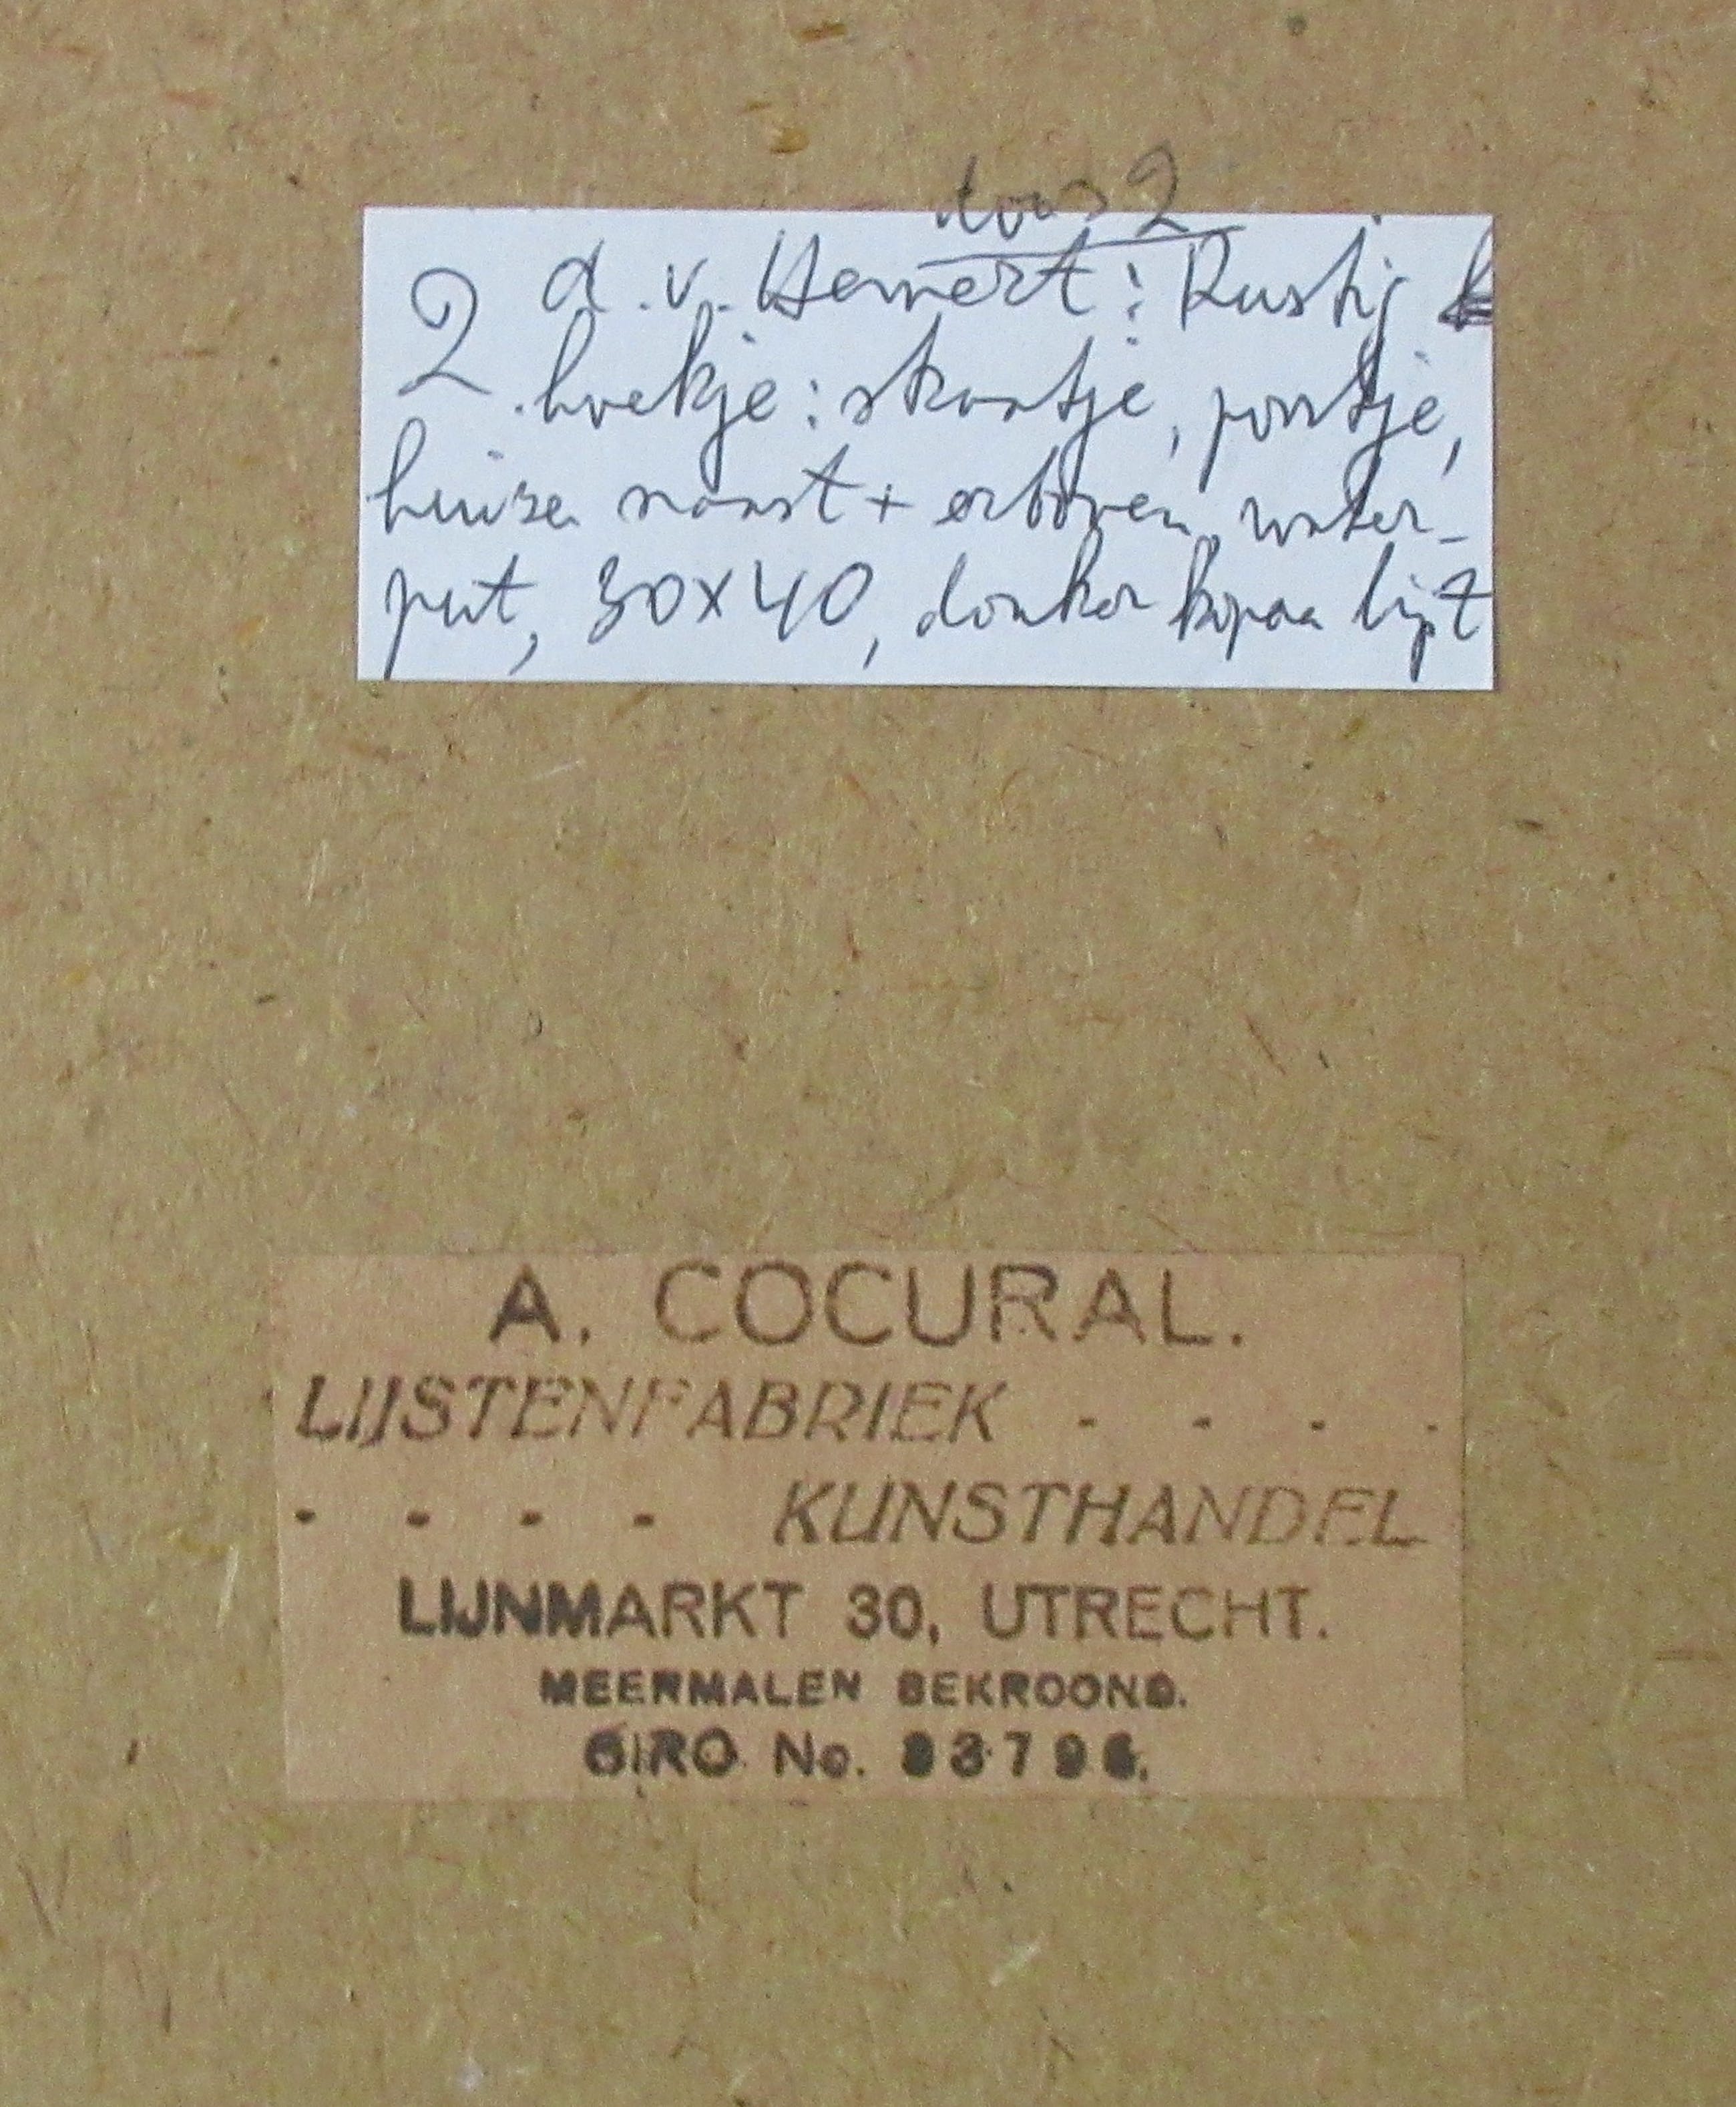 doos 2
2 d. v. Hemert: Rustig
hoekje: straatje, poortje,
huize naast + erboven, water-
put, 30x40, donker kopaa lijst
A. COCURAL.
LIJSTENFABRIEK - - - -
- - - - KUNSTHANDEL
LIJNMARKT 30, UTRECHT.
MEERMALEN BEKROOND.
GIRO No.